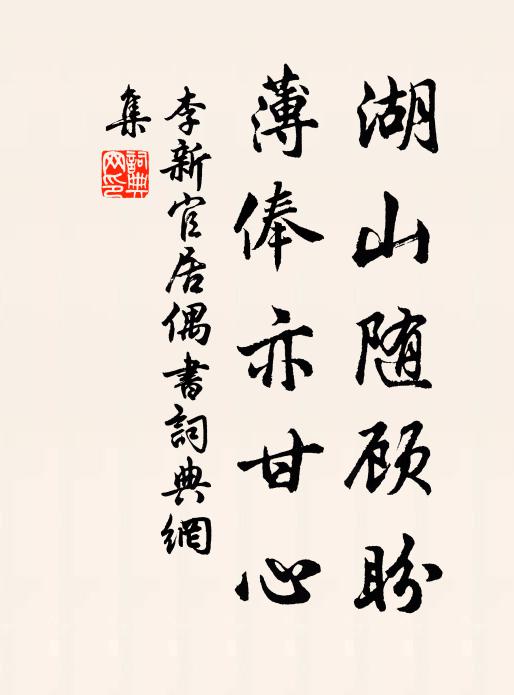 湖山随顾盼
薄俸亦甘心
李新官居偶書詞典網
集
詞典
网印